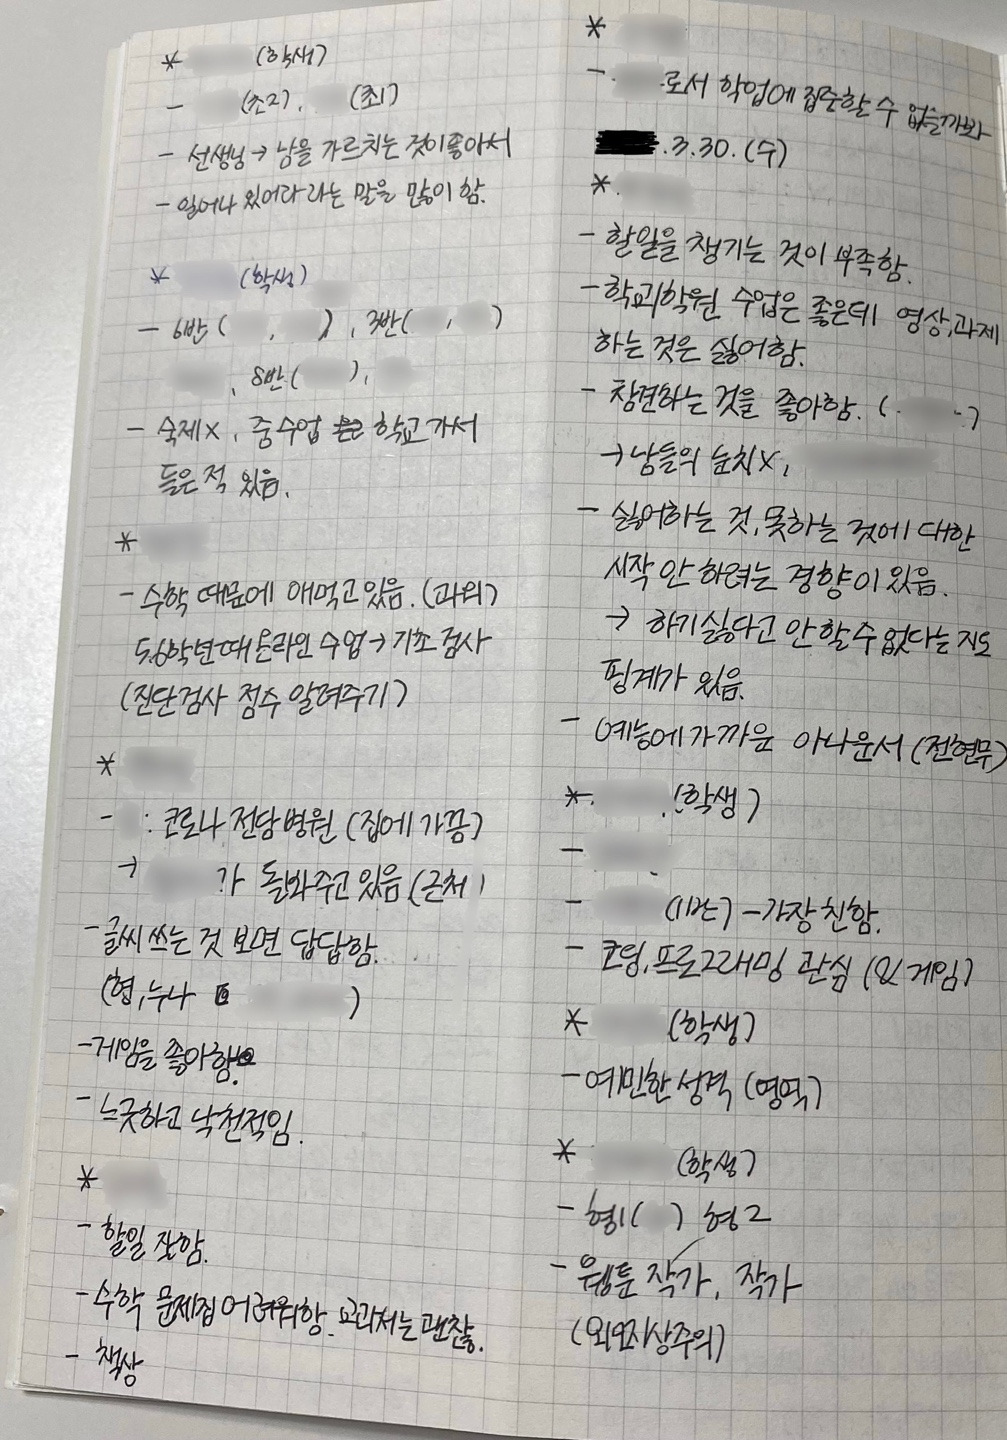 * (학생)
- (초2), (초1)
- 선생님 → 남을 가르치는 것이 좋아서
- 일어나 있어라 라는 말을 많이 함.
* (학생)
- 6반 ( , ), 3반( , )
, 8반( ),
- 숙제X, 줌수업 학교가서
들은 적 있음.
*
- 수학 때문에 애먹고 있음. (과외)
5,6학년 때 온라인 수업 → 기초 검사
(진단검사 점수 알려주기)
*
- : 코로나 전담병원 (집에 가끔)
→ 가 돌봐주고 있음 (근처)
- 글씨 쓰는 것 보면 답답함.
(형, 누나 )
- 게임을 좋아함.
- 느긋하고 낙천적임.
*
- 할일 잘함.
- 수학 문제집 어려워함. 교과서는 괜찮.
- 책상
*
- 로서 학업에 집중할 수 없을까봐
.3.30.(수)
*
- 할일을 챙기는 것이 부족함.
- 학교/학원 수업은 좋은데 영상,과제
하는 것은 싫어함.
- 참견하는 것을 좋아함. ( )
→ 남들의 눈치X,
- 싫어하는 것, 못하는 것에 대한
시작 안 하려는 경향이 있음.
→ 하기 싫다고 안 할 수 없다는 지도
핑계가 있음.
- 예능에 가까운 아나운서 (전현무)
* (학생)
-
- (1반) - 가장 친함.
- 코딩, 프로그래밍 관심 (& 게임)
* (학생)
- 예민한 성격 (영역)
* (학생)
- 형1( ) 형2
- 웹툰 작가, 작가
(외모지상주의)